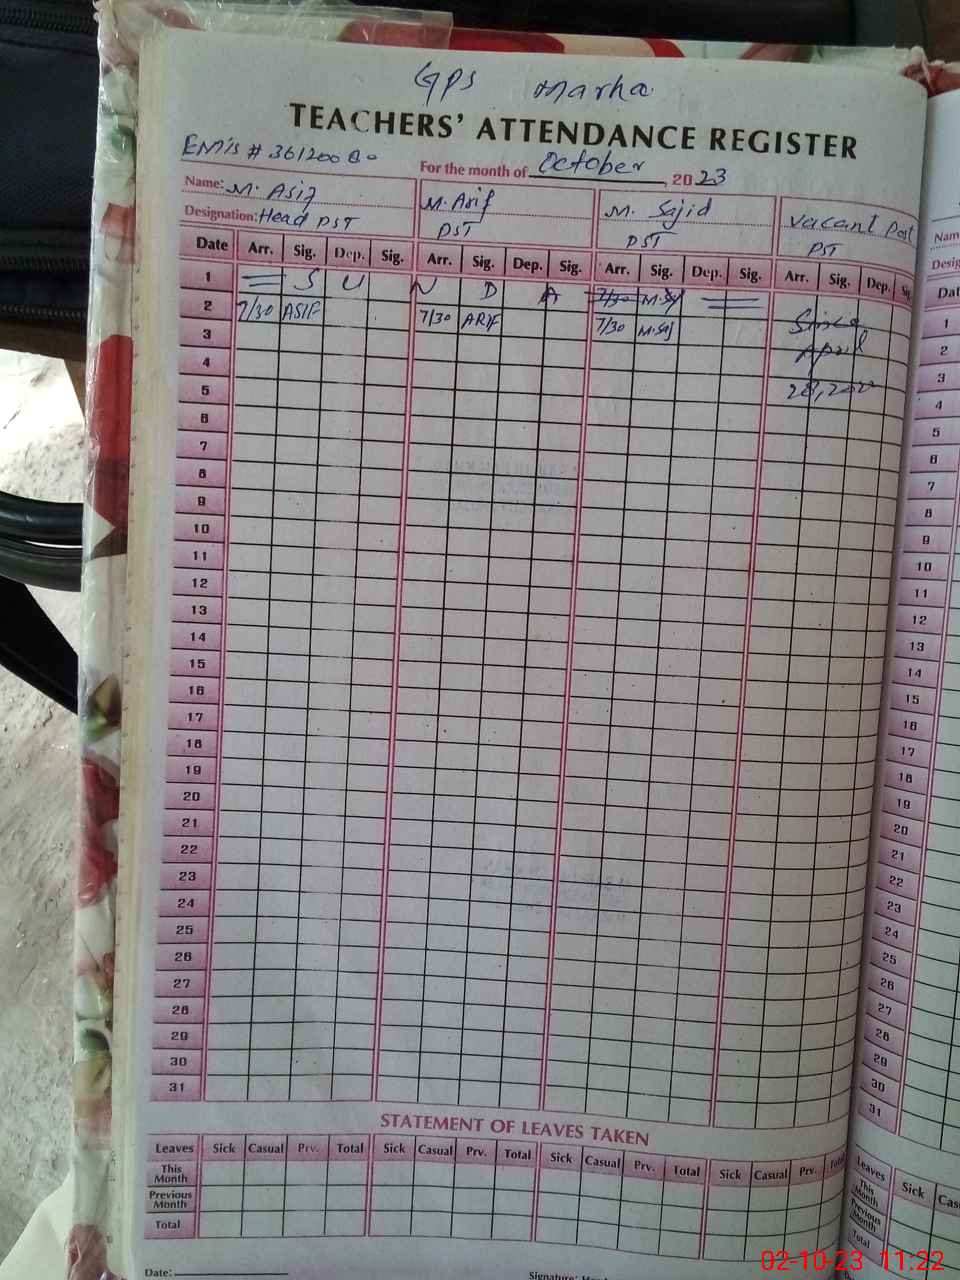 GPS Marha
TEACHERS' ATTENDANCE REGISTER
EMIS # 361200
For the month of October, 2023
Name: M. Asif M. Arif M. Sajid Vacant Post
Designation: Head PST PST PST PST
Date Arr. Sig. Dep. Sig. Arr. Sig. Dep. Sig. Arr. Sig. Dep. Sig. Arr. Sig. Dep. Sig
1 S U N D A 7/30 M.Saj
2 7/30 ASIF 7/30 ARIF 7/30 M.Saj Since
3 April
4 28,
5
6
7
8
9
10
11
12
13
14
15
16
17
18
19
20
21
22
23
24
25
26
27
28
29
30
31
STATEMENT OF LEAVES TAKEN
Leaves Sick Casual Prv. Total Sick Casual Prv. Total Sick Casual Prv. Total Sick Casual Prv.
This Month
Previous Month
Total
Date:
Signature:
Nam
Desig
Dat
1
2
3
4
5
6
7
8
9
10
11
12
13
14
15
16
17
18
19
20
21
22
23
24
25
26
27
28
29
30
31
Leaves Sick Cas
This Month
Previous Month
Total
02-10-23 11:22